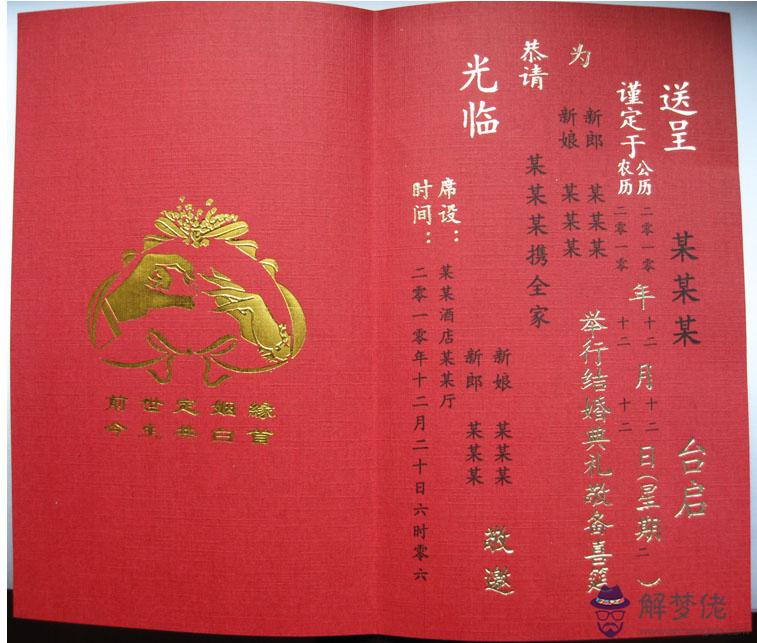 送呈 某某某 台启
谨定于 公历 二零一零 年 十二 月 十二 日(星期二)
农历 二零一零 十二 十二
为 新郎 某某某
新娘 某某某
举行结婚典礼敬备善筵
恭请 某某某携全家
光临
新娘 某某某
新郎 某某某
敬邀
席设：某某酒店某某厅
时间：二零一零年十二月二十日六时零六
前世定姻緣
今生共白首
解梦佬